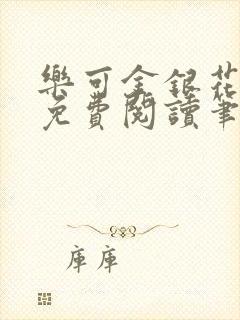 樂可金銀花
免費閱讀筆
庫庫